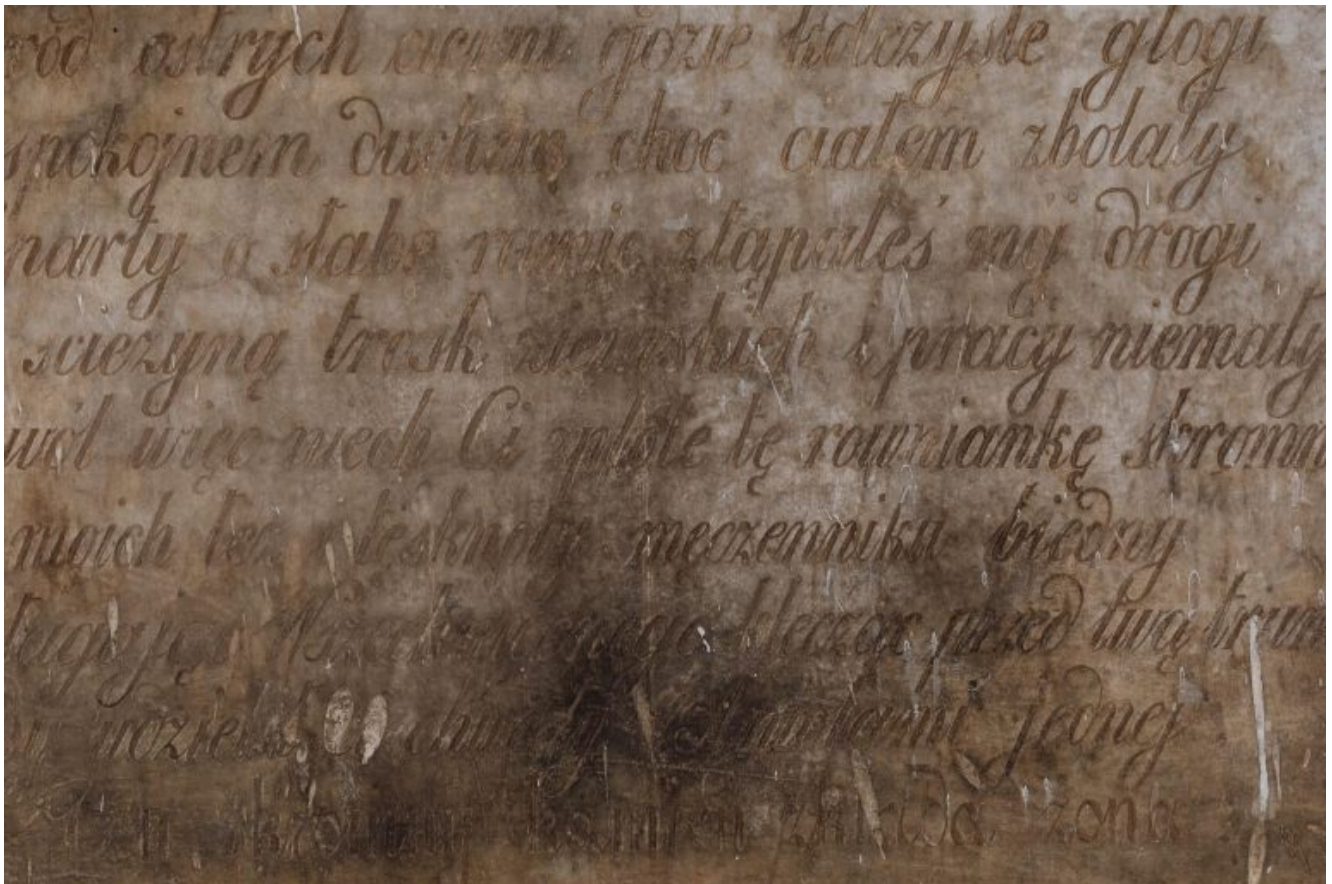 ród ostrych cierni gdzie kolczyste głogi
spokojnem duchem choć ciałem zbolały
party o słabe ramię stąpałeś mój drogi
scieżyną trosk ziemskich i pracy niemały
więc niech Ci splotę tę rowniankę skromn
moich łez i tęsknoty męczenniku biedny
klęcząc przed twą trum
chwały jednej
składa żona